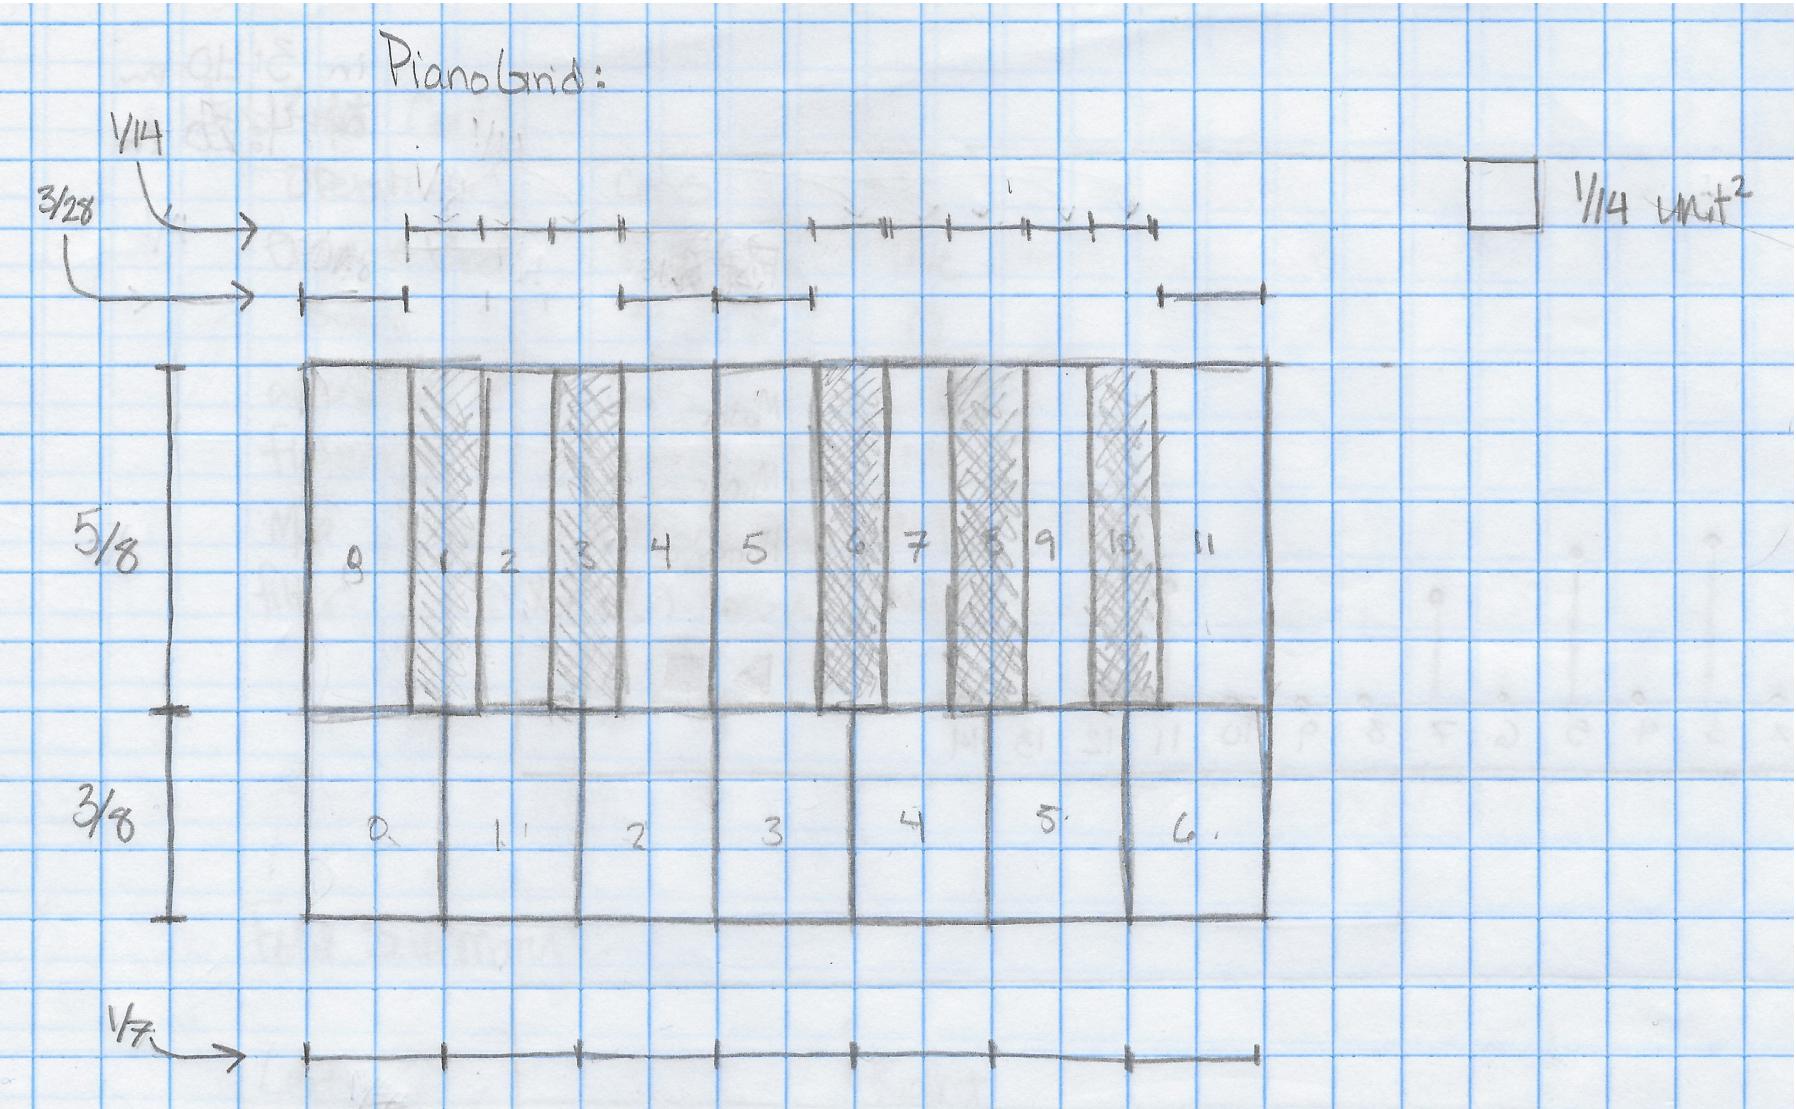 PianoGrid:
1/14
3/28
1/14 unit²
5/8
0 1 2 3 4 5 6 7 8 9 10 11
3/8
0 1 2 3 4 5 6
1/7